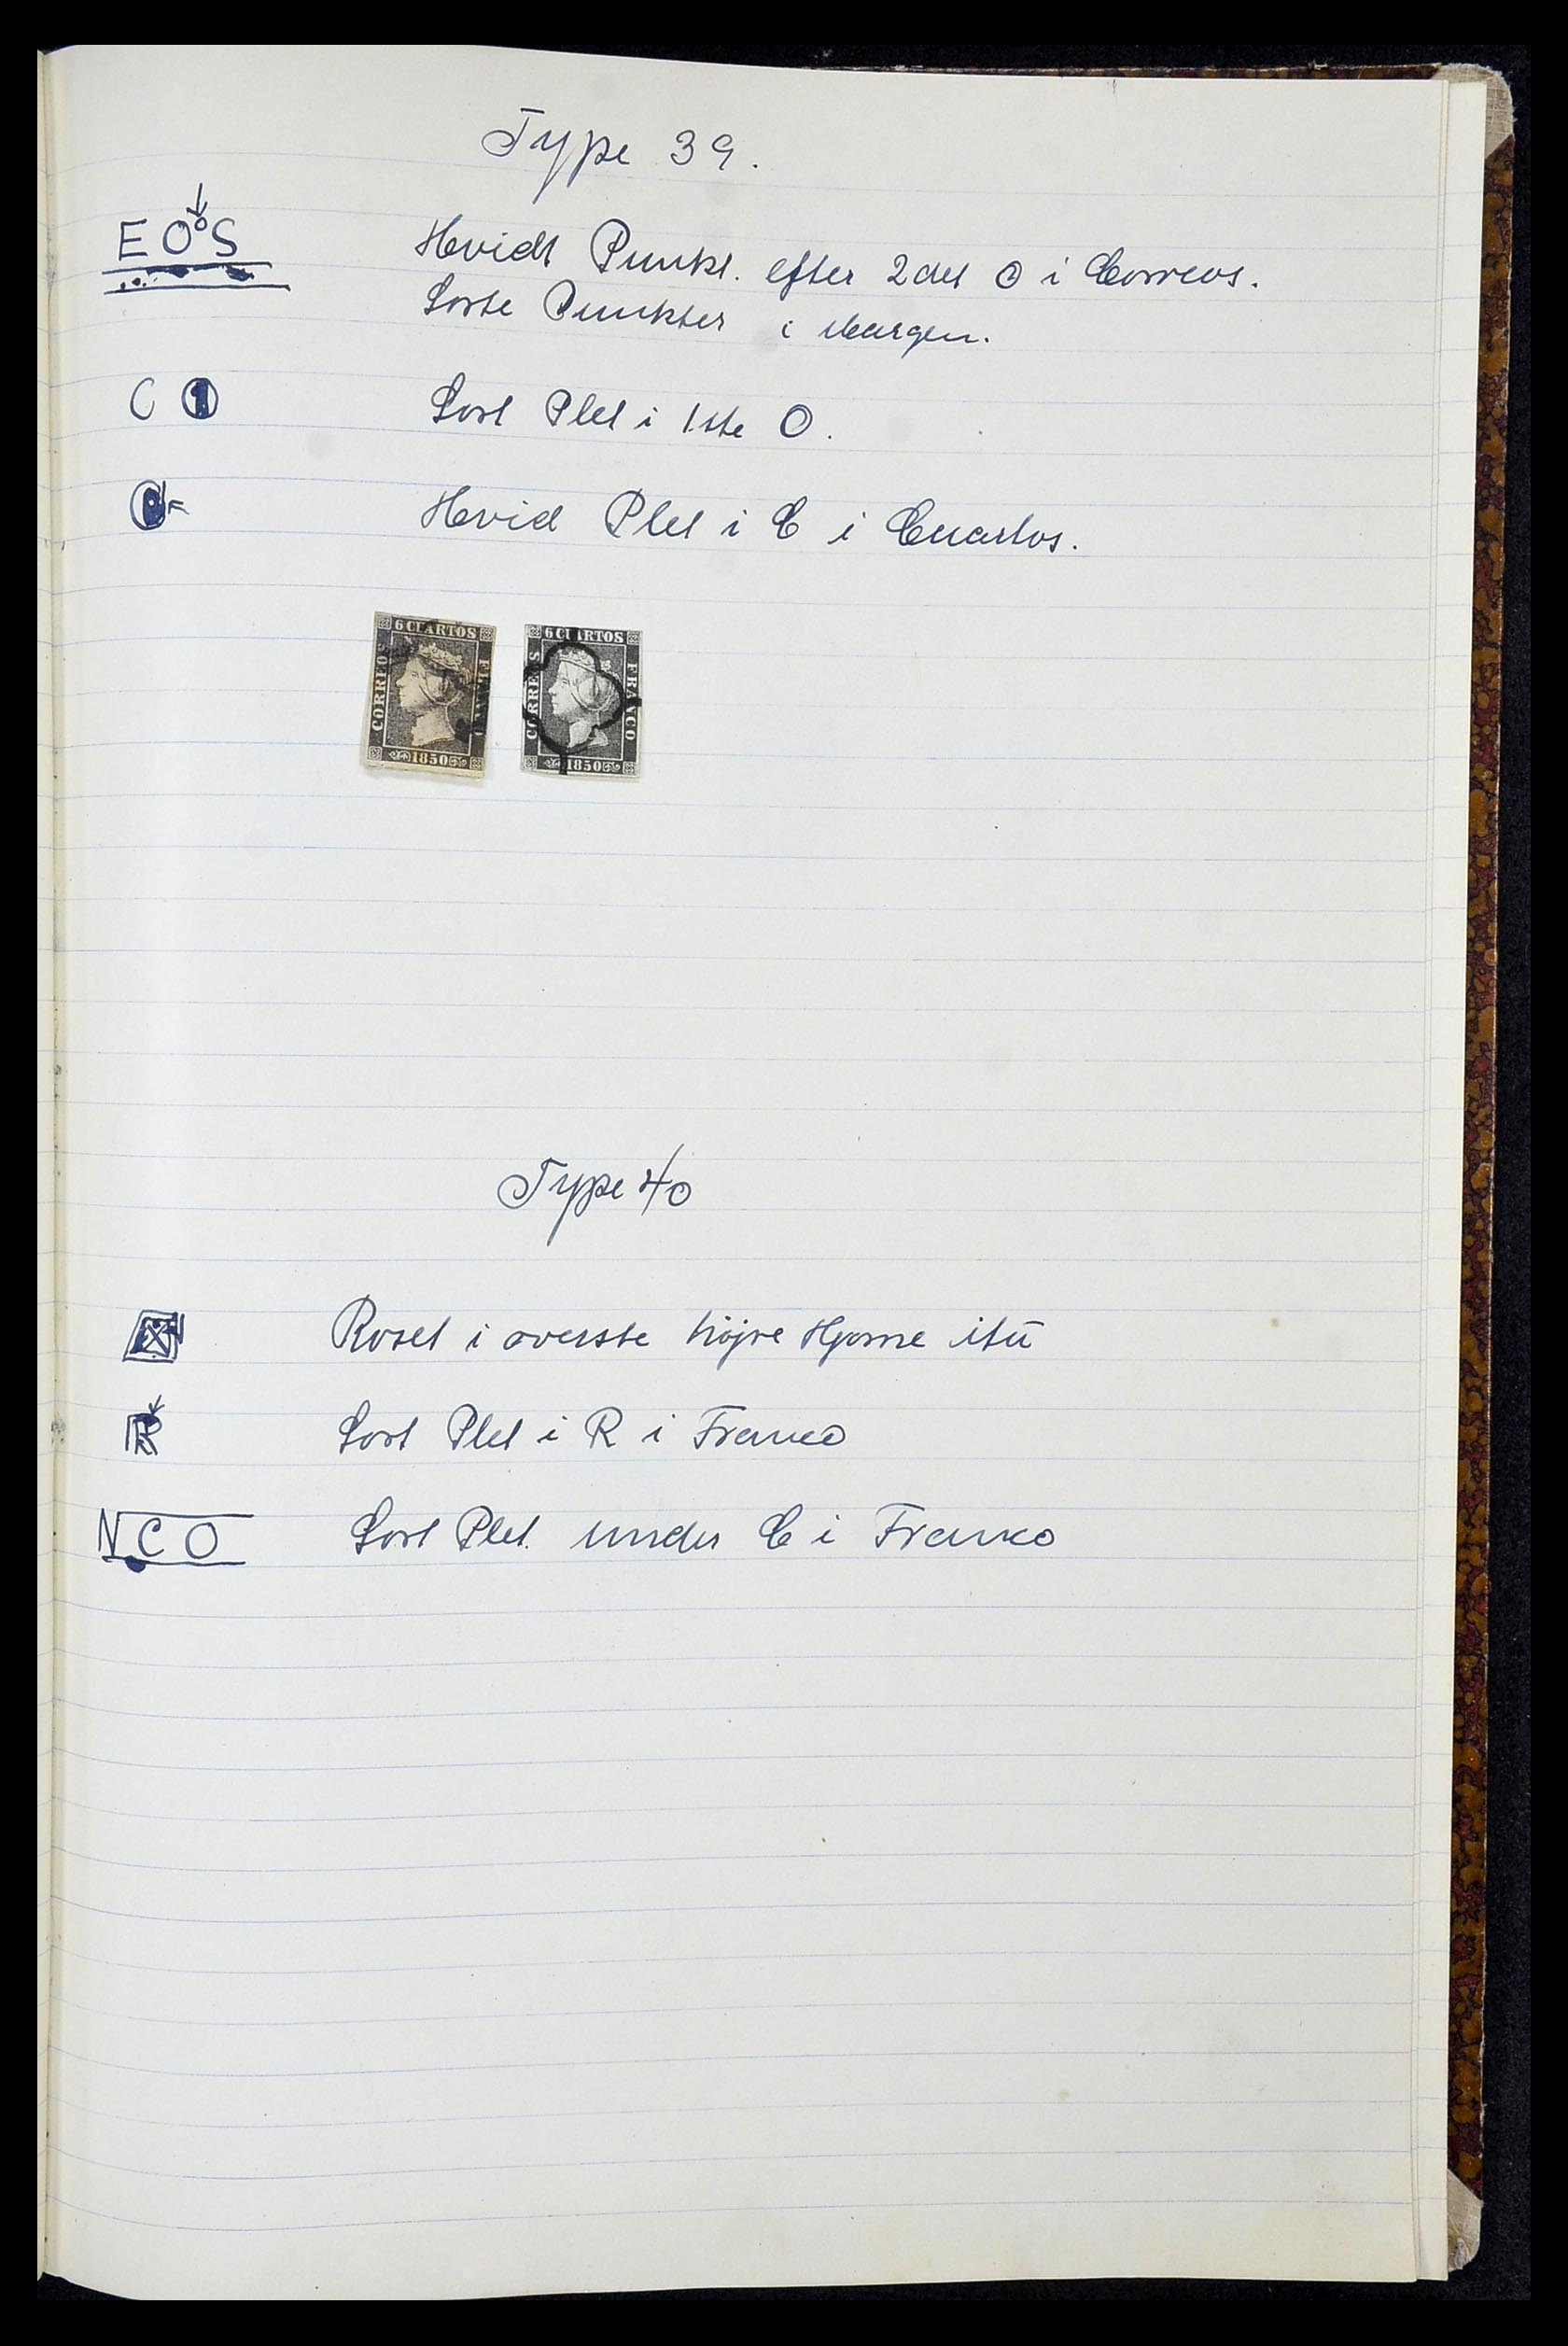 Type 39.
EOS
Hvidt Punkt. efter 2det O i Correos.
Sorte Punkter i Margen.
C O
Sort Plet i 1ste O.
C
Hvid Plet i C i Cuartos.
6 CUARTOS
CORREOS
FRANCO
1850
6 CUARTOS
CORREOS
FRANCO
1850
Type 40
Roset i øverste højre Hjørne itu
R
Sort Plet i R i Franco
NCO
Sort Plet. under C i Franco